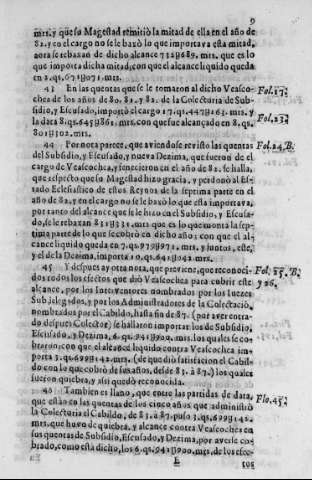 9
mrs. y que su Magestad remitiò la mitad de ella en el año de
82. y en el cargo no se le baxò lo que importava esta mitad,
aora se rebaxan de dicho alcance mrs. que es lo
que importa dicha mitad, con que el alcance liquido queda
en mrs.
43 En las quentas que se le tomaron al dicho Veasco-
chea de los años de 80. 81. y 82. de la Colecturia de Sub-
sidio, y Escusado, importò el cargo mrs. y
la data mrs. con que fue alcançado en 8. qs.
mrs.
Fol. 17.
Fol. 23.
44 Por nota parece, que aviendose revisto las quentas
del Subsidio, y Escusado, y nueva Dezima, que fueron de el
cargo de Veascochea, y fenecieron en el año de 82. se halla,
que respecto que su Magestad hizo gracia, y perdonò al Es-
tado Eclesiastico de estos Reynos de la septima parte en el
año de 82. y en el cargo no se le baxò lo que esta importava,
por tanto del alcance que se le hizo en el Subsidio, y Escusa-
do, se le rebaxan mrs. que es lo que monta la sep-
tima parte de lo que se cobrò en dicho año; con que el al-
cance liquido queda en mrs. y juntos, este,
y el de la Dezima, importa mrs.
Fol. 24. B.
45 Y despues ay otra nota, que previene, que reconoci-
dos todos los efectos que diò Veascochea para cubrir este
alcance, por los Interventores nombrados por los Iuezes
Subdelegados, y por los Administradores de la Colectaciõ,
nombrados por el Cabildo, hasta fin de 87. (por aver entra-
do despues Colector) se hallaron importar los de Subsidio,
Escusado, y Dezima, mrs. los quales se co-
braron, con que el alcance liquido contra Veascochea im-
porta mrs. (de que diò satisfacion el Cabil-
do con lo que cobrò de sus años, desde 83. à 87.) los quales
fueron quiebra, y assi quedò reconocida.
Fol. 25. B.
y 26.
46 Tambien es llano, que entre las partidas de data,
que estàn en las quentas de los cinco años que administrò
la Colecturia el Cabildo, de 83. à 87. puso
mrs. que huvo de quiebra, y alcance contra Veascochea en
sus quentas de Subsidio, Escusado, y Dezima, por averse co-
brado, como està dicho, los mrs. de los efec-
Fol. 45.
E
tos